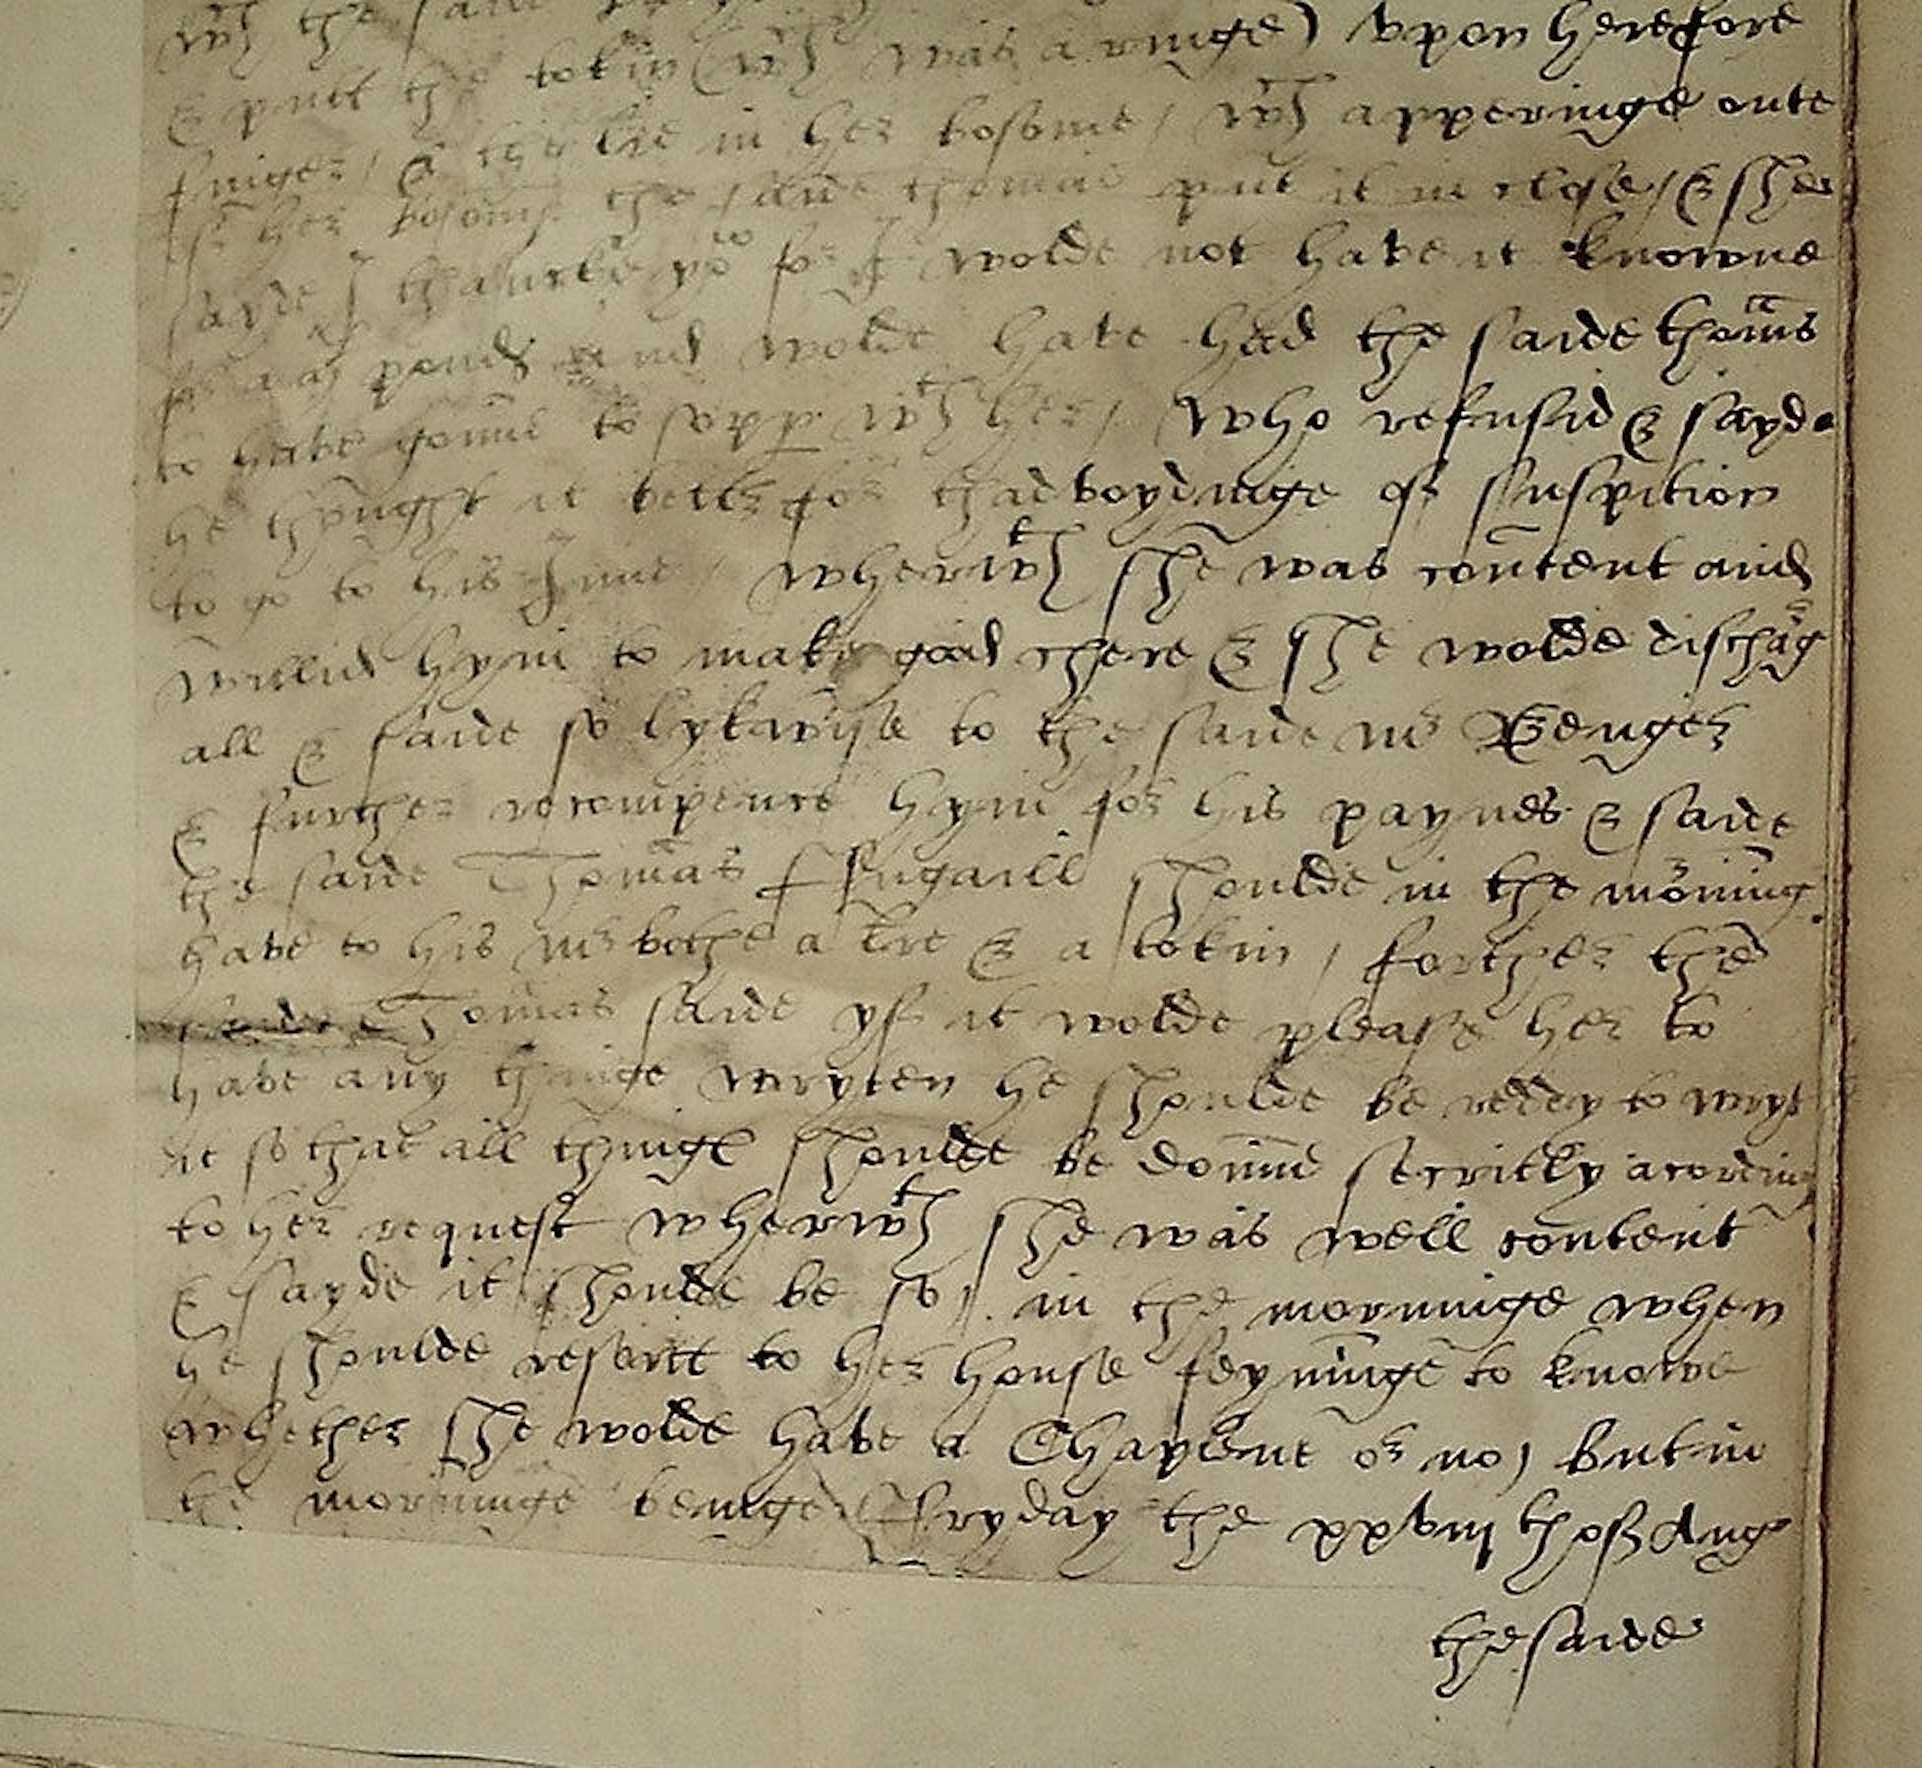 wch the saide
& putt the tokin (wch was a ringe) vpon her fore
finger, & the lre in her bosome, wch apperinge oute
of her bosome the saide thomas put it in close, & she
sayde I thancke yo for I wolde not have it knowne
for a pounds and wolde have had the saide thomas
to have gonne to supp wth her, who refusid & sayde
he thought it better for thadvoydinge of suspition
to go to his Inne, wherwth she was content and
willid hym to make good chere & she wolde discharg
all & saide so lykwyse to the saide mr
& further recompence hym for his paynes & saide
the saide Thomas ffugaill shoulde in the morning
have to his mr bothe a lre & a tokin, forther the
saide Thomas saide yf it wolde please her to
have any thinge wryten he shoulde be reddy to wryt
it so that all things shoulde be donne secritly acording
to her request wherwth she was well content
& sayde it shoulde be so, in the morninge when
he shoulde resorte to her house feyninge to knowe
whether she wolde have a or no, but in
the morninge beinge ffryday the xxviij th of Aug
the saide